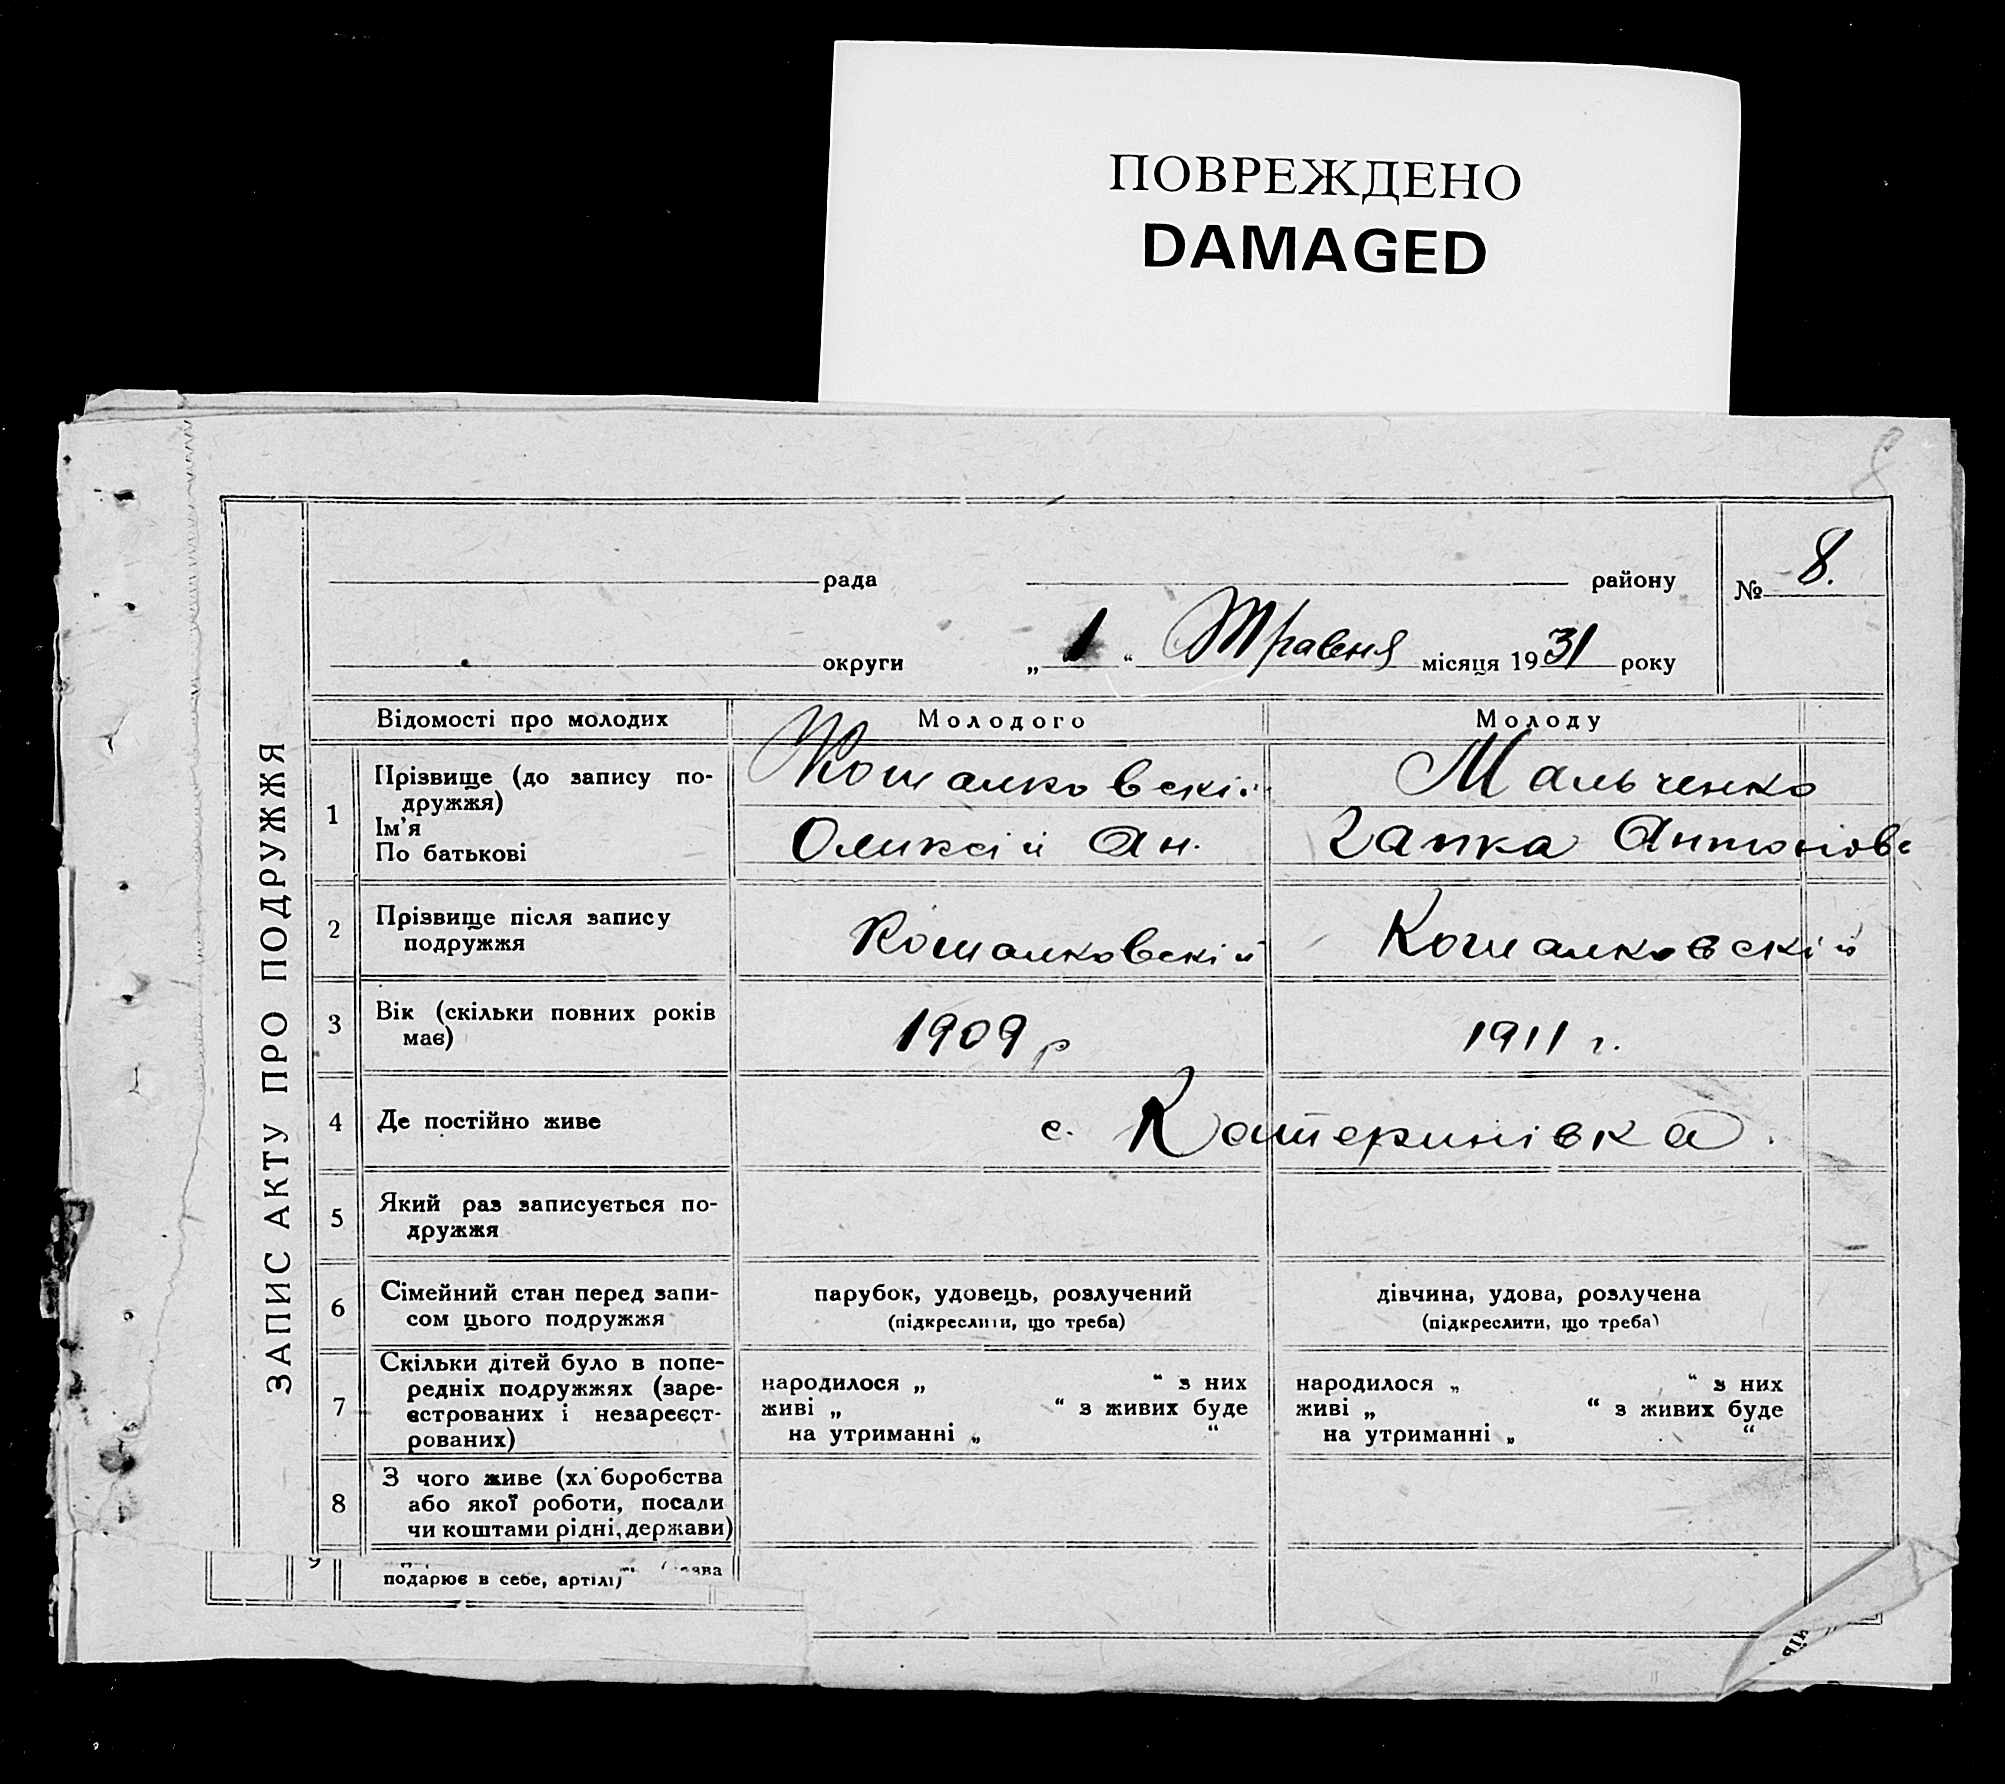 ПОВРЕЖДЕНО
DAMAGED
8
ЗАПИС АКТУ ПРО ПОДРУЖЖЯ
рада району
№ 8.
округи „ 1 “ Травня місяця 1931 року
Відомості про молодих Молодого Молоду
1 Прізвище (до запису по-
дружжя)
Ім'я
По батькові
Кошалковскій Мальченко
Оликсій Ан. Гапка Антонівс
2 Прізвище після запису
подружжя
Кошалковскій Кошалковскій
3 Вік (скільки повних років
має)
1909 р 1911 г.
4 Де постійно живе
с. Катеринівка.
5 Який раз записується по-
дружжя
6 Сімейний стан перед запи-
сом цього подружжя
парубок, удовець, розлучений
(підкреслити, що треба)
дівчина, удова, розлучена
(підкреслити, що треба)
7 Скільки дітей було в попе-
редніх подружжях (заре-
єстрованих і незареєст-
рованих)
народилося „ “ з них
живі „ “ з живих буде
на утриманні „ “
народилося „ “ з них
живі „ “ з живих буде
на утриманні „ “
8 З чого живе (хліборобства
або якої роботи, посади
чи коштами рідні, держави)
9
подарює в себе, артілі,